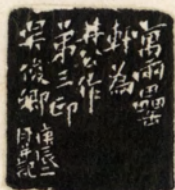 萬雨
軒為
井公作
第三印
吳俊卿
庚辰二
月